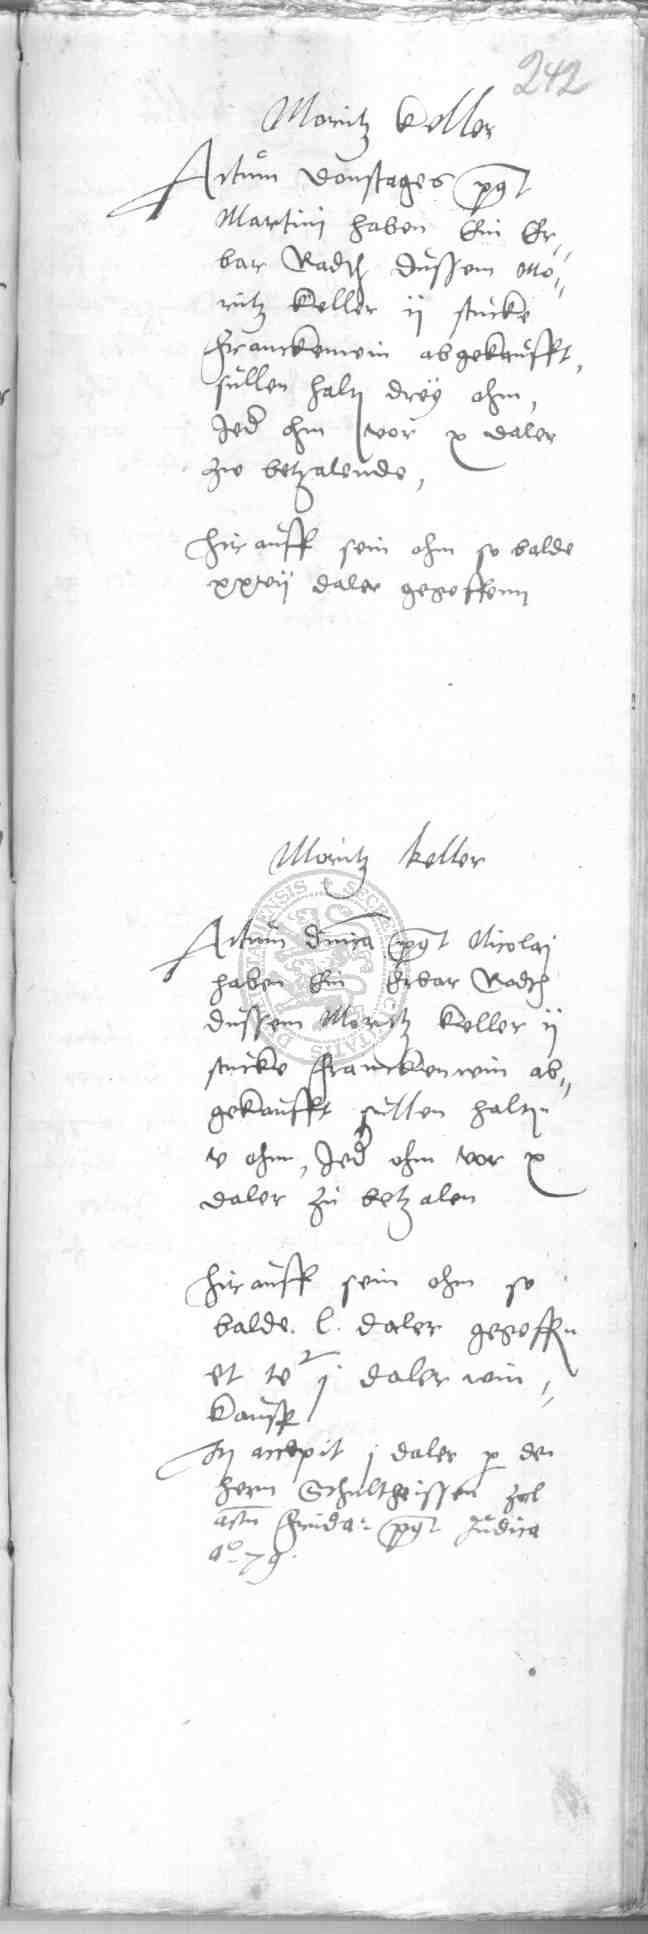 242
Moritz Keller
Actum Donstages post
Martinj haben Ein Er¬
bar Radth dussem Mo¬
ritz Keller ij stucke
Franckenwein abgekaufft,
sullen haltn dreÿ ohm,
Jed ohm vor x daler
zw betzalende,
Hir auff sein ohm so balde
xxvij daler gegeffenn
Moritz Keller
Actum dnica post Nicolaj
haben Ein Erbar Radth
dussem Moritz Keller ij
stucke Franckenwin ab¬
gekaufft sullen haltn
v ohm, Jed ohm vor x
daler zu betzalen
Hir auff sein ohm so
balde l daler gegeffn
et j daler win¬
kauff
accepit j daler p den
hern Schultheissen
actu post Judica
ao 79